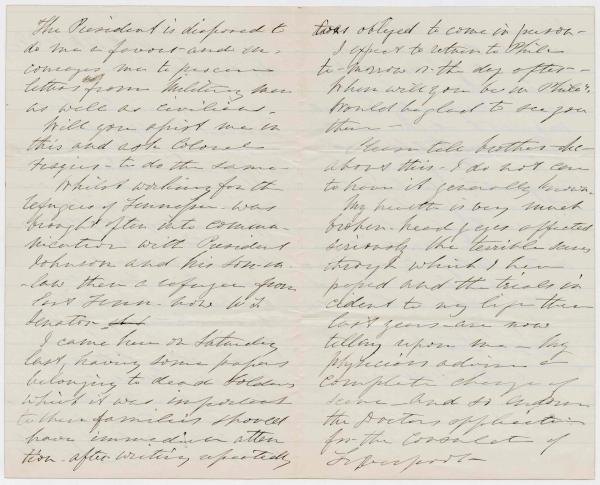 The President is disposed to
do me a favor and en-
courages me to procure
letters from Military men
as well as civilians.
Will you assist me in
this and ask Colonel
to do the same -
Whilst working for the
refugees of Tennessee - was
brought often into commu-
nication with President
Johnson and his son-in-
-law then a refugee from
East Tenn - now U.S.
Senator
I came here on Saturday
last, having some papers
belonging to dead soldiers
which it was important
to their families should
have immediate atten
tion - after writing repeatedly
was obliged to come in person -
I expect to return to Phila
to-morrow or the day after -
When will you be in Phila?
Would be glad to see you
then -
Please tell brother
about this - I do not care
to have it generally known -
My health is very much
broken - head & eyes affected
seriously the terrible scenes
through which I have
passed and the trials in
cident to my life these
last years - are now
telling upon me - My
physicians advise a
complete change of
scene - and so endorse
the Doctors application
for the Consulate of
Liverpool -